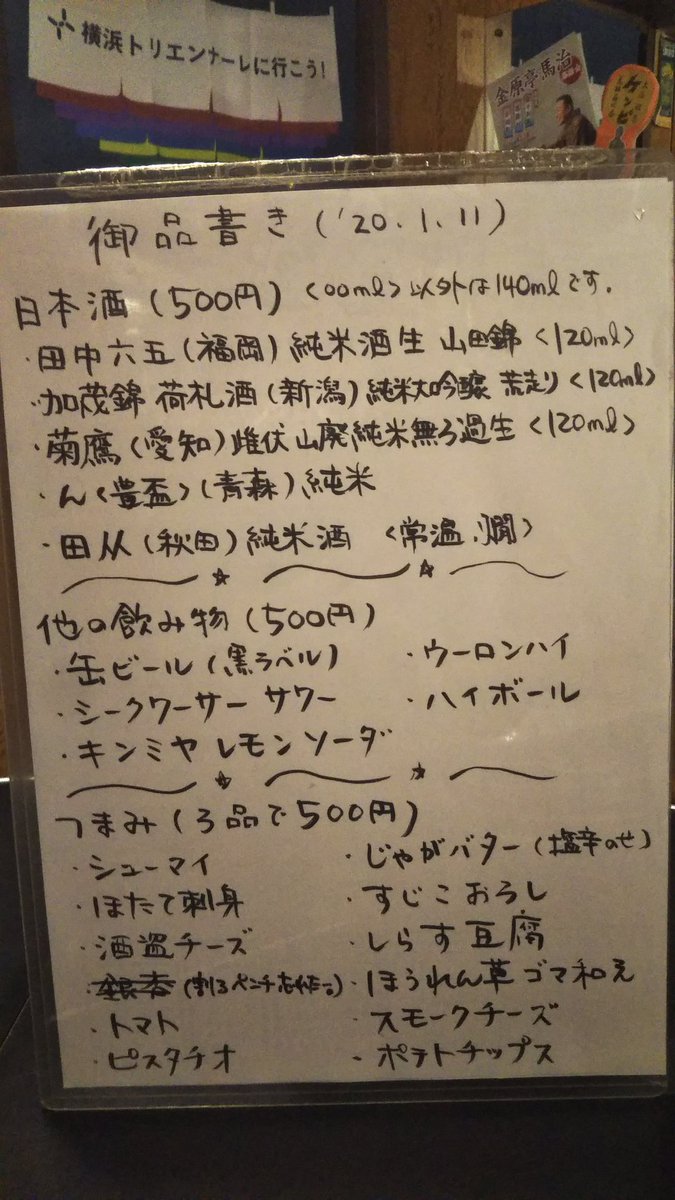 横浜トリエンナーレに行こう!
金原亭馬治
ケンピ
御品書き('20.1.11)
日本酒(500円)〈00ml〉以外は140mlです.
・田中六五(福岡)純米酒生 山田錦〈120ml〉
・加茂錦 荷札酒(新潟)純米大吟醸 荒走り〈120ml〉
・菊鷹(愛知)雌伏 山廃純米無ろ過生〈120ml〉
・ん〈豊盃〉(青森)純米
・田从(秋田)純米酒 〈常温.燗〉
他の飲み物(500円)
・缶ビール(黒ラベル) ・ウーロンハイ
・シークワーサー サワー ・ハイボール
・キンミヤ レモンソーダ
つまみ(3品で500円)
・シューマイ ・じゃがバター(塩辛のせ)
・ほたて刺身 ・すじこおろし
・酒盗チーズ ・しらす豆腐
・銀杏(割るペンチ) ・ほうれん草ゴマ和え
・トマト ・スモークチーズ
・ピスタチオ ・ポテトチップス